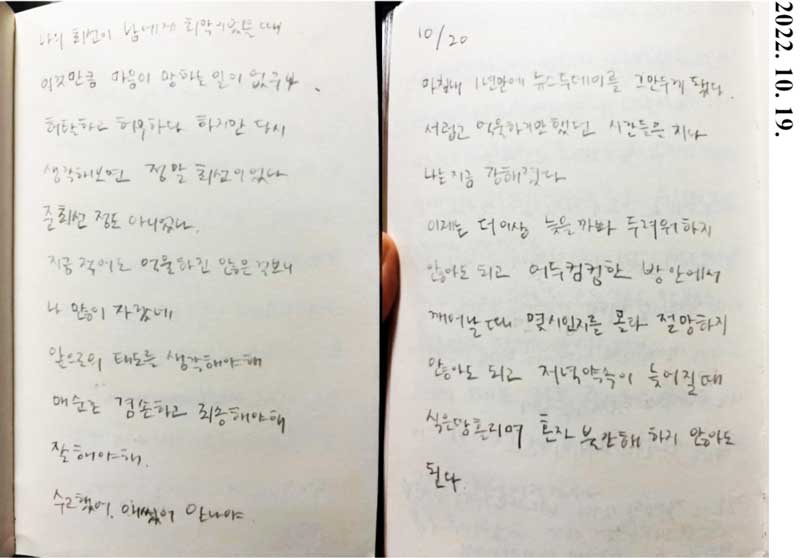 나의 최선이 남에게 최악이었을 때
이것만큼 마음이 망하는 일이 없구나.
허탈하고 허무하다 하지만 다시
생각해보면 정말 최선이었나
준최선 정도 아니었나.
지금 적어도 억울하진 않은 걸보니
나 많이 자랐네
앞으로의 태도를 생각해야해
매순간 겸손하고 죄송해야해
잘해야해.
수고했어. 애썼어 안나야.
10/20
마침내 1년만에 뉴스투데이를 그만두게 됐다.
서럽고 억울하기만했던 시간들은 지나
나는 지금 강해졌다
이제는 더이상 늦을까봐 두려워하지
않아도 되고 어두컴컴한 방안에서
깨어날때 몇시인지를 몰라 절망하지
않아도 되고 저녁약속이 늦어질때
식은땀흘리며 혼자 불안해 하지 않아도
된다.
2022. 10. 19.